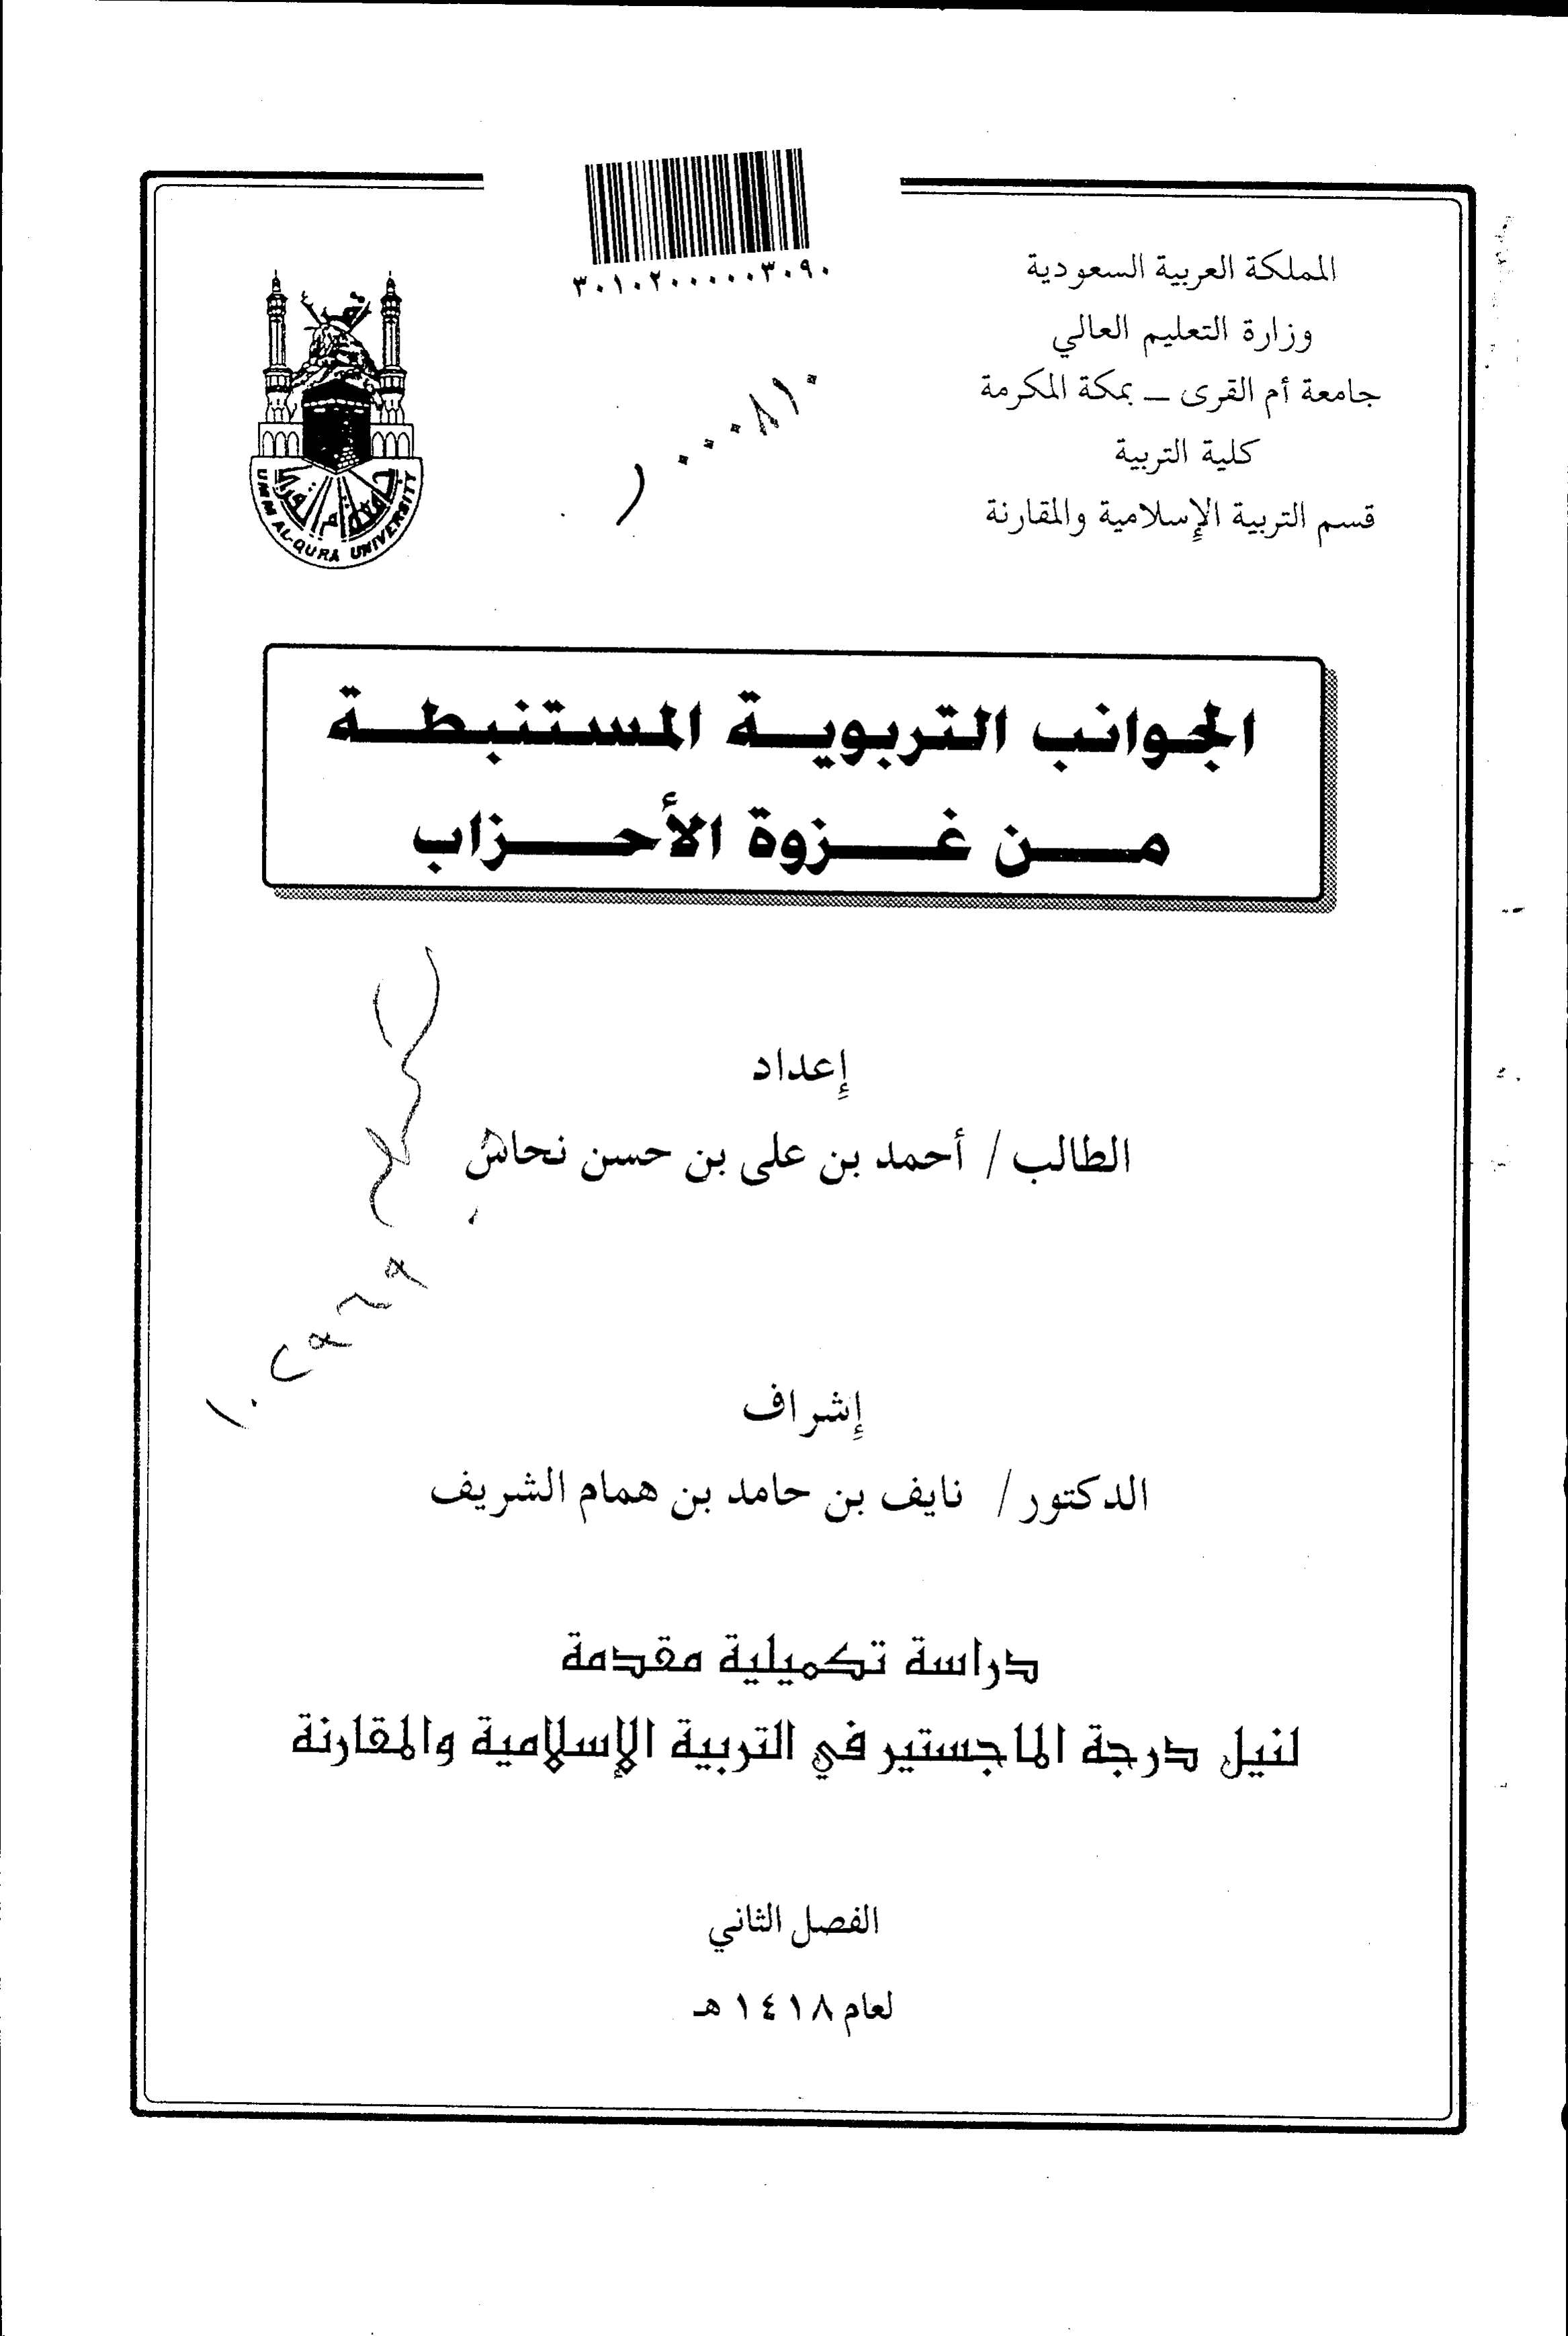 المملكة العربية السعودية
وزارة التعليم العالي
جامعة أم القرى ـ بمكة المكرمة
كلية التربية
قسم التربية الإسلامية والمقارنة
٣٠١٠٢٠٠٠٠٠٣٠٩٠
UMM AL-QURA UNIVERSITY
الجوانب التربوية المستنبطة
من غزوة الأحزاب
إعداد
الطالب / أحمد بن على بن حسن نحاش
إشراف
الدكتور / نايف بن حامد بن همام الشريف
دراسة تكميلية مقدمة
لنيل درجة الماجستير في التربية الإسلامية والمقارنة
الفصل الثاني
لعام ١٤١٨ هـ